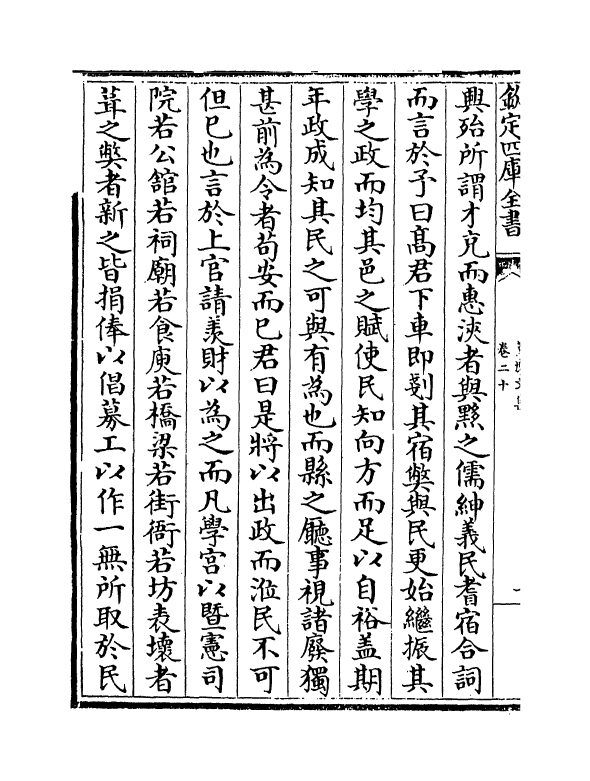 欽定四庫全書
卷二十
興殆所謂才克而惠浹者與黟之儒紳義民耆宿合詞
而言於予曰髙君下車即剗其宿獘與民更始繼振其
學之政而均其邑之賦使民知向方而足以自裕盖期
年政成知其民之可與有為也而縣之廳事視諸廨獨
甚前為令者茍安而已君曰是將以出政而涖民不可
但已也言於上官請羡財以為之而凡學宫以暨憲司
院若公館若祠廟若食庾若橋梁若街衢若坊表壞者
葺之獘者新之皆捐俸以倡募工以作一無所取於民